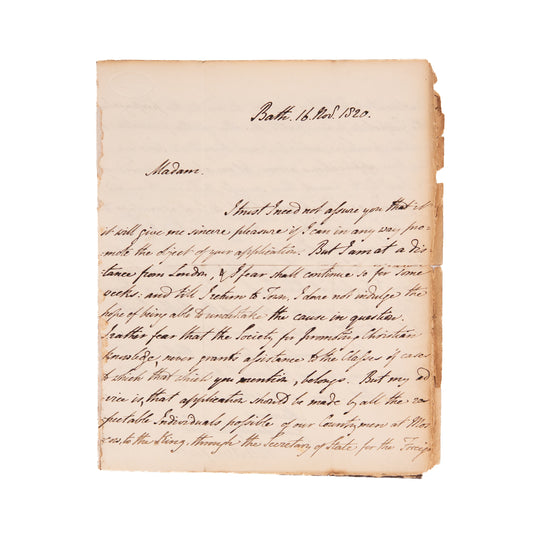 Bath. 16. Nov. 1820.
Madam.
I trust I need not assure you that it
it will give me sincere pleasure if I can in any way pro-
mote the object of your application. But I am at a dis-
tance from London, & I fear shall continue so for some
weeks. and till I return to Town, I dare not indulge the
hope of being able to undertake the cause in question.
I rather fear that the Society for promoting Christian
knowledge, never grants assistance to the Classe of cases
to which that which you mention, belongs. But my ad
vice is, that application should be made by all the re-
spectable Individuals possible of our Countrymen at Mos
cow, to the King, through the Secretary of State for the Foreign